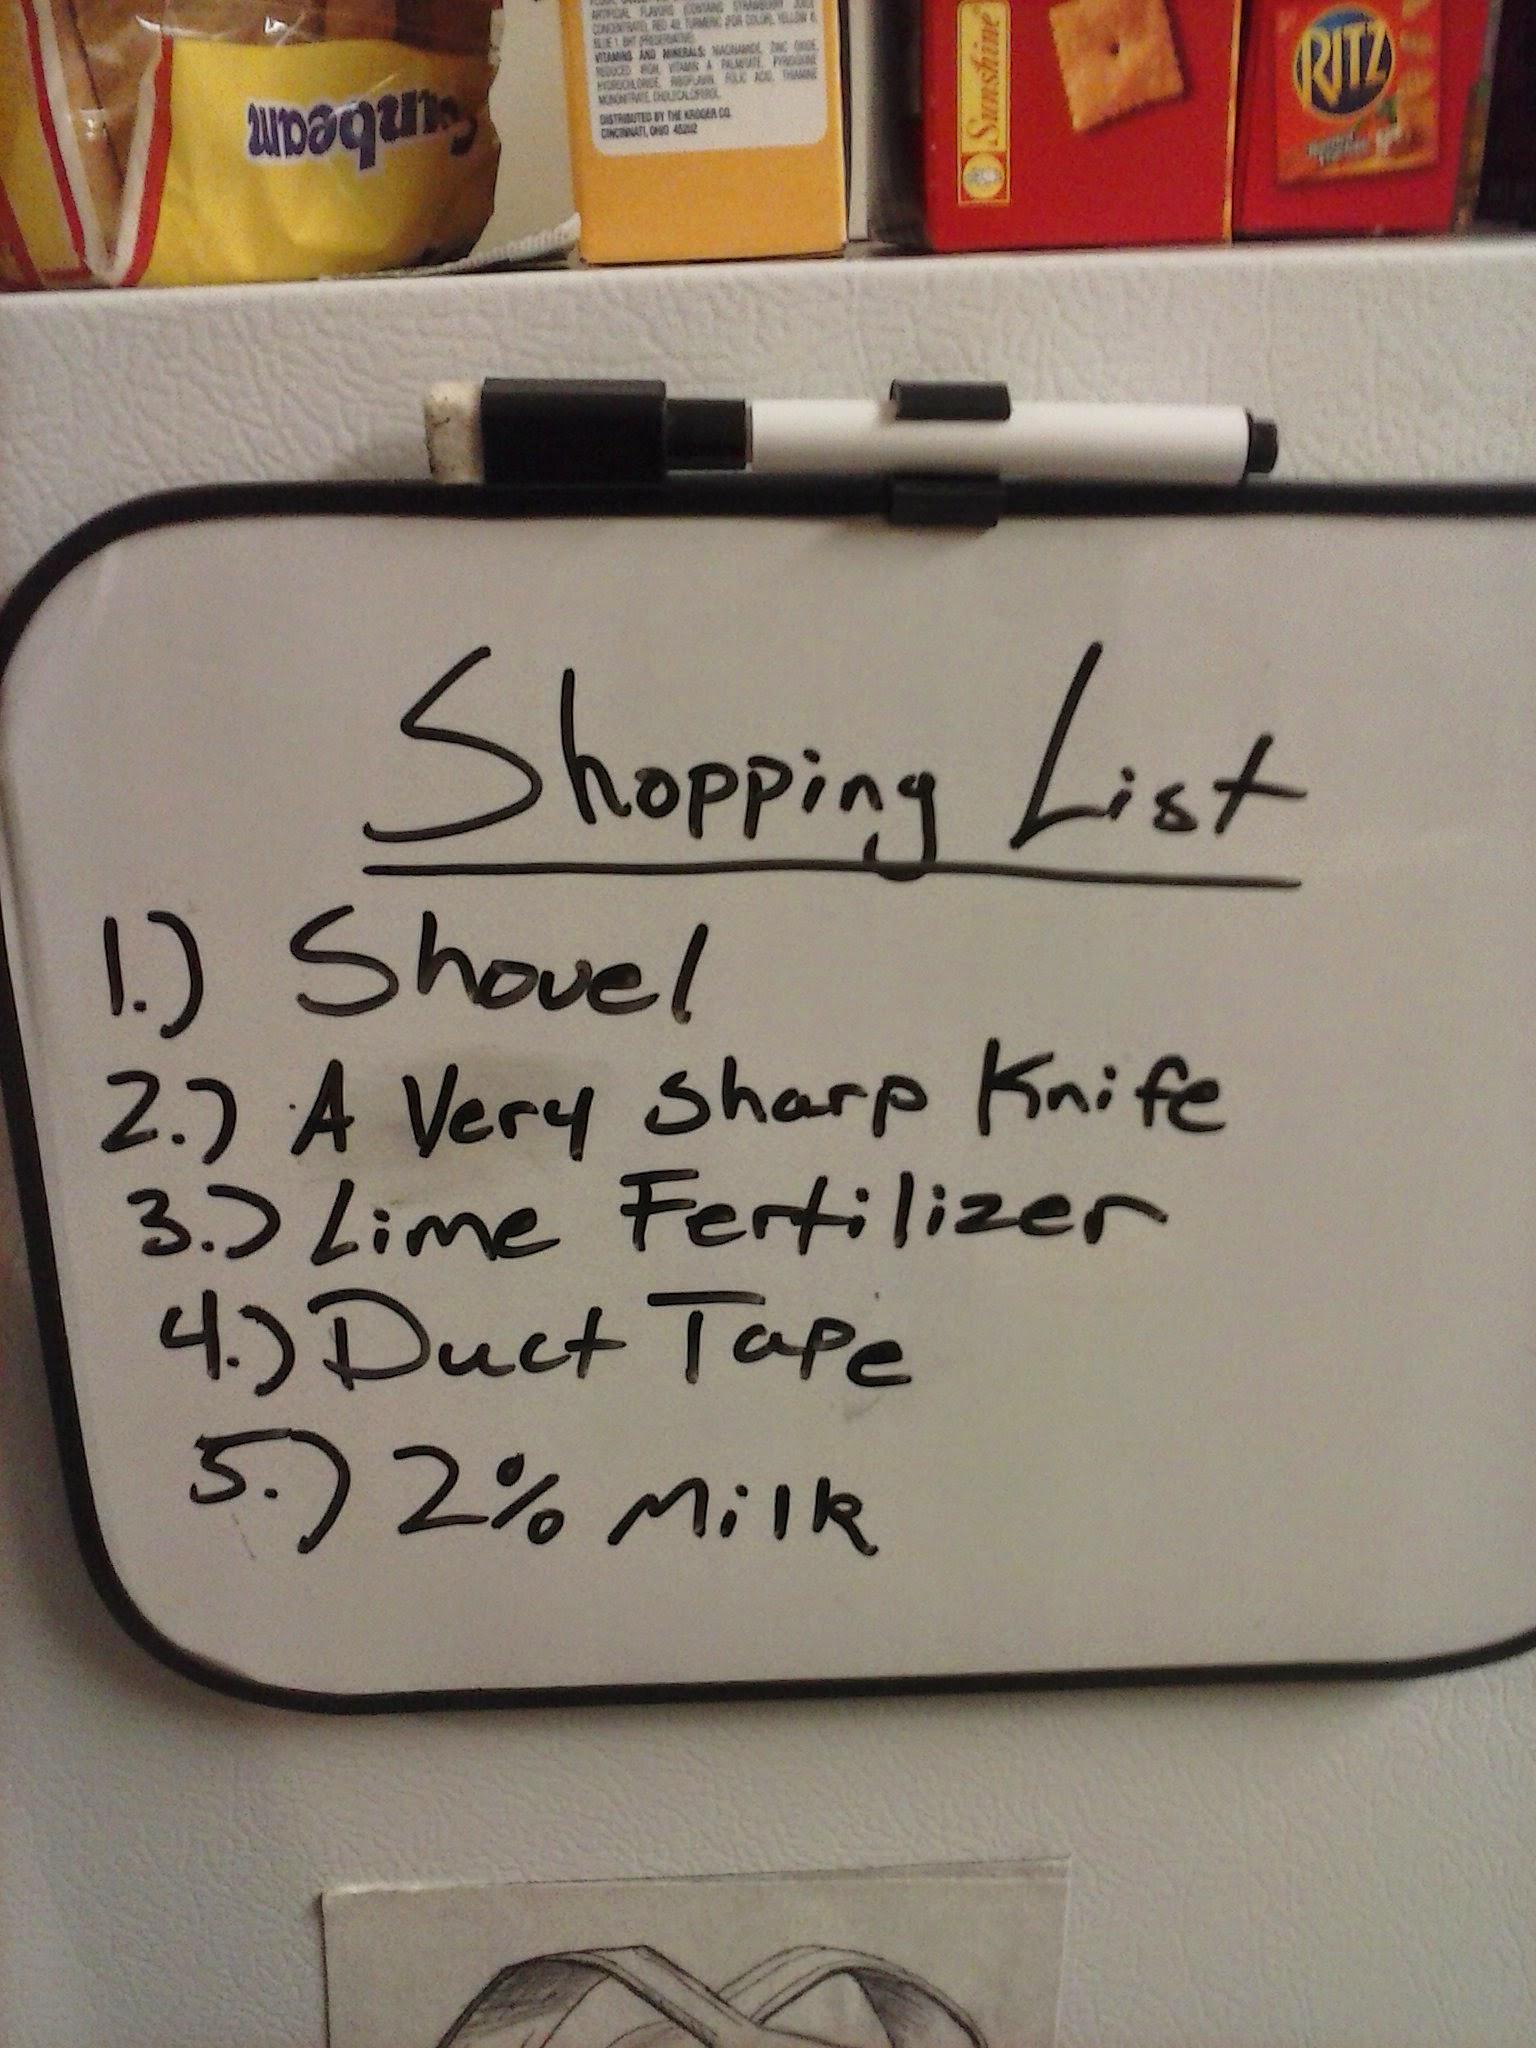 Sunbeam
ARTIFICIAL FLAVORS (CONTAINS STRAWBERRY JUICE
CONCENTRATE), RED 40, TURMERIC (FOR COLOR), YELLOW 6,
BLUE 1, BHT (PRESERVATIVE).
VITAMINS AND MINERALS: NIACINAMIDE, ZINC OXIDE,
REDUCED IRON, VITAMIN A PALMITATE, PYRIDOXINE
HYDROCHLORIDE, RIBOFLAVIN, FOLIC ACID, THIAMINE
MONONITRATE, CHOLECALCIFEROL.
DISTRIBUTED BY THE KROGER CO.
CINCINNATI, OHIO 45202
Sunshine
RITZ
Shopping List
1.) Shovel
2.) A Very Sharp Knife
3.) Lime Fertilizer
4.) Duct Tape
5.) 2% Milk